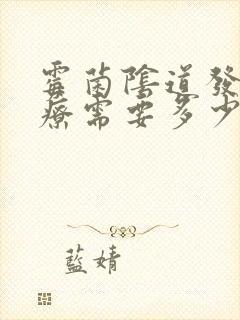 霉菌陰道發
療需要多少
藍婧